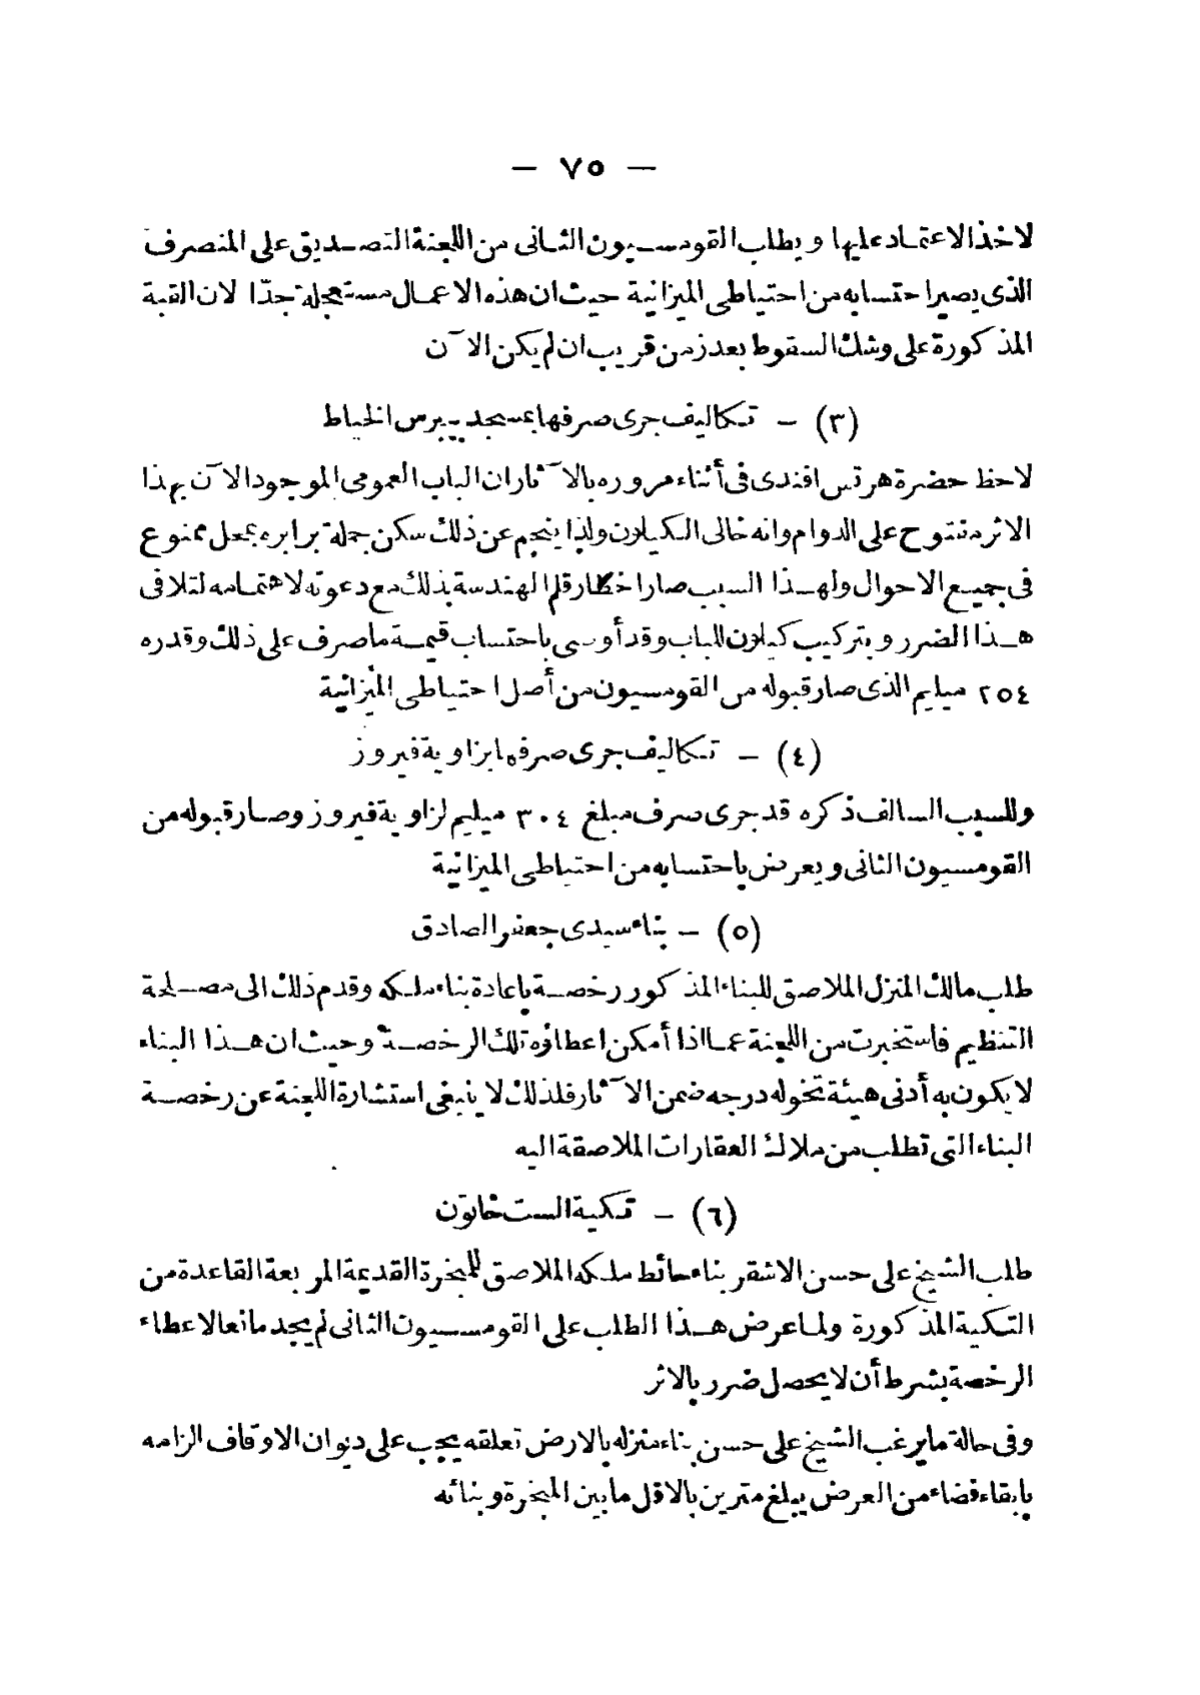 — ٧٥ —
لاخذ الاعتماد عليها ويطلب القومسيون الثانى من اللجنة التصديق على المنصرف
الذى يصير احتسابه من احتياطى الميزانية حيث ان هذه الاعمال مستعجلة جدّا لان القبة
المذكورة على وشك السقوط بعد زمن قريب ان لم يكن الآن
(٣) — تكاليف جرى صرفها بمسجد بيبرس الخياط
لاحظ حضرة هرتس افندى فى أثناء مروره بالآثار ان الباب العمومى الموجود الآن بهذا
الاثر مفتوح على الدوام وانه خالى الكيلون ولذا ينجم عن ذلك سكن جملة برابره بمحل ممنوع
فى جميع الاحوال ولهذا السبب صار اخطار قلم الهندسة بذلك مع دعوته لاهتمامه لتلافى
هذا الضرر وبتركيب كيلون للباب وقد أوصى باحتساب قيمة ما صرف على ذلك وقدره
٢٥٤ ميليم الذى صار قبوله من القومسيون من أصل احتياطى الميزانية
(٤) — تكاليف جرى صرفها بزاوية فيروز
وللسبب السالف ذكره قد جرى صرف مبلغ ٣٠٤ ميليم لزاوية فيروز وصار قبوله من
القومسيون الثانى ويعرض باحتسابه من احتياطى الميزانية
(٥) — بناء سيدى جعفر الصادق
طلب مالك المنزل الملاصق للبناء المذكور رخصة باعادة بناء ملكه وقدم ذلك الى مصلحة
التنظيم فاستخبرت من اللجنة عما اذا أمكن اعطاؤه تلك الرخصة وحيث ان هذا البناء
لا يكون به أدنى هيئة تخوله درجه ضمن الآثار فلذلك لا ينبغى استشارة اللجنة عن رخصة
البناء التى تطلب من ملاك العقارات الملاصقة اليه
(٦) — تكية الست خاتون
طلب الشيخ على حسن الاشقر بناء حائط ملكه الملاصق للمبخرة القديمة المربعة القاعدة من
التكية المذكورة ولما عرض هذا الطلب على القومسيون الثانى لم يجد مانعا لاعطاء
الرخصة بشرط أن لا يحصل ضرر بالاثر
وفى حالة ما يرغب الشيخ على حسن بناء منزله بالارض تعلقه يجب على ديوان الاوقاف الزامه
بابقاء فضاء من العرض يبلغ مترين بالاقل ما بين المبخرة وبنائه